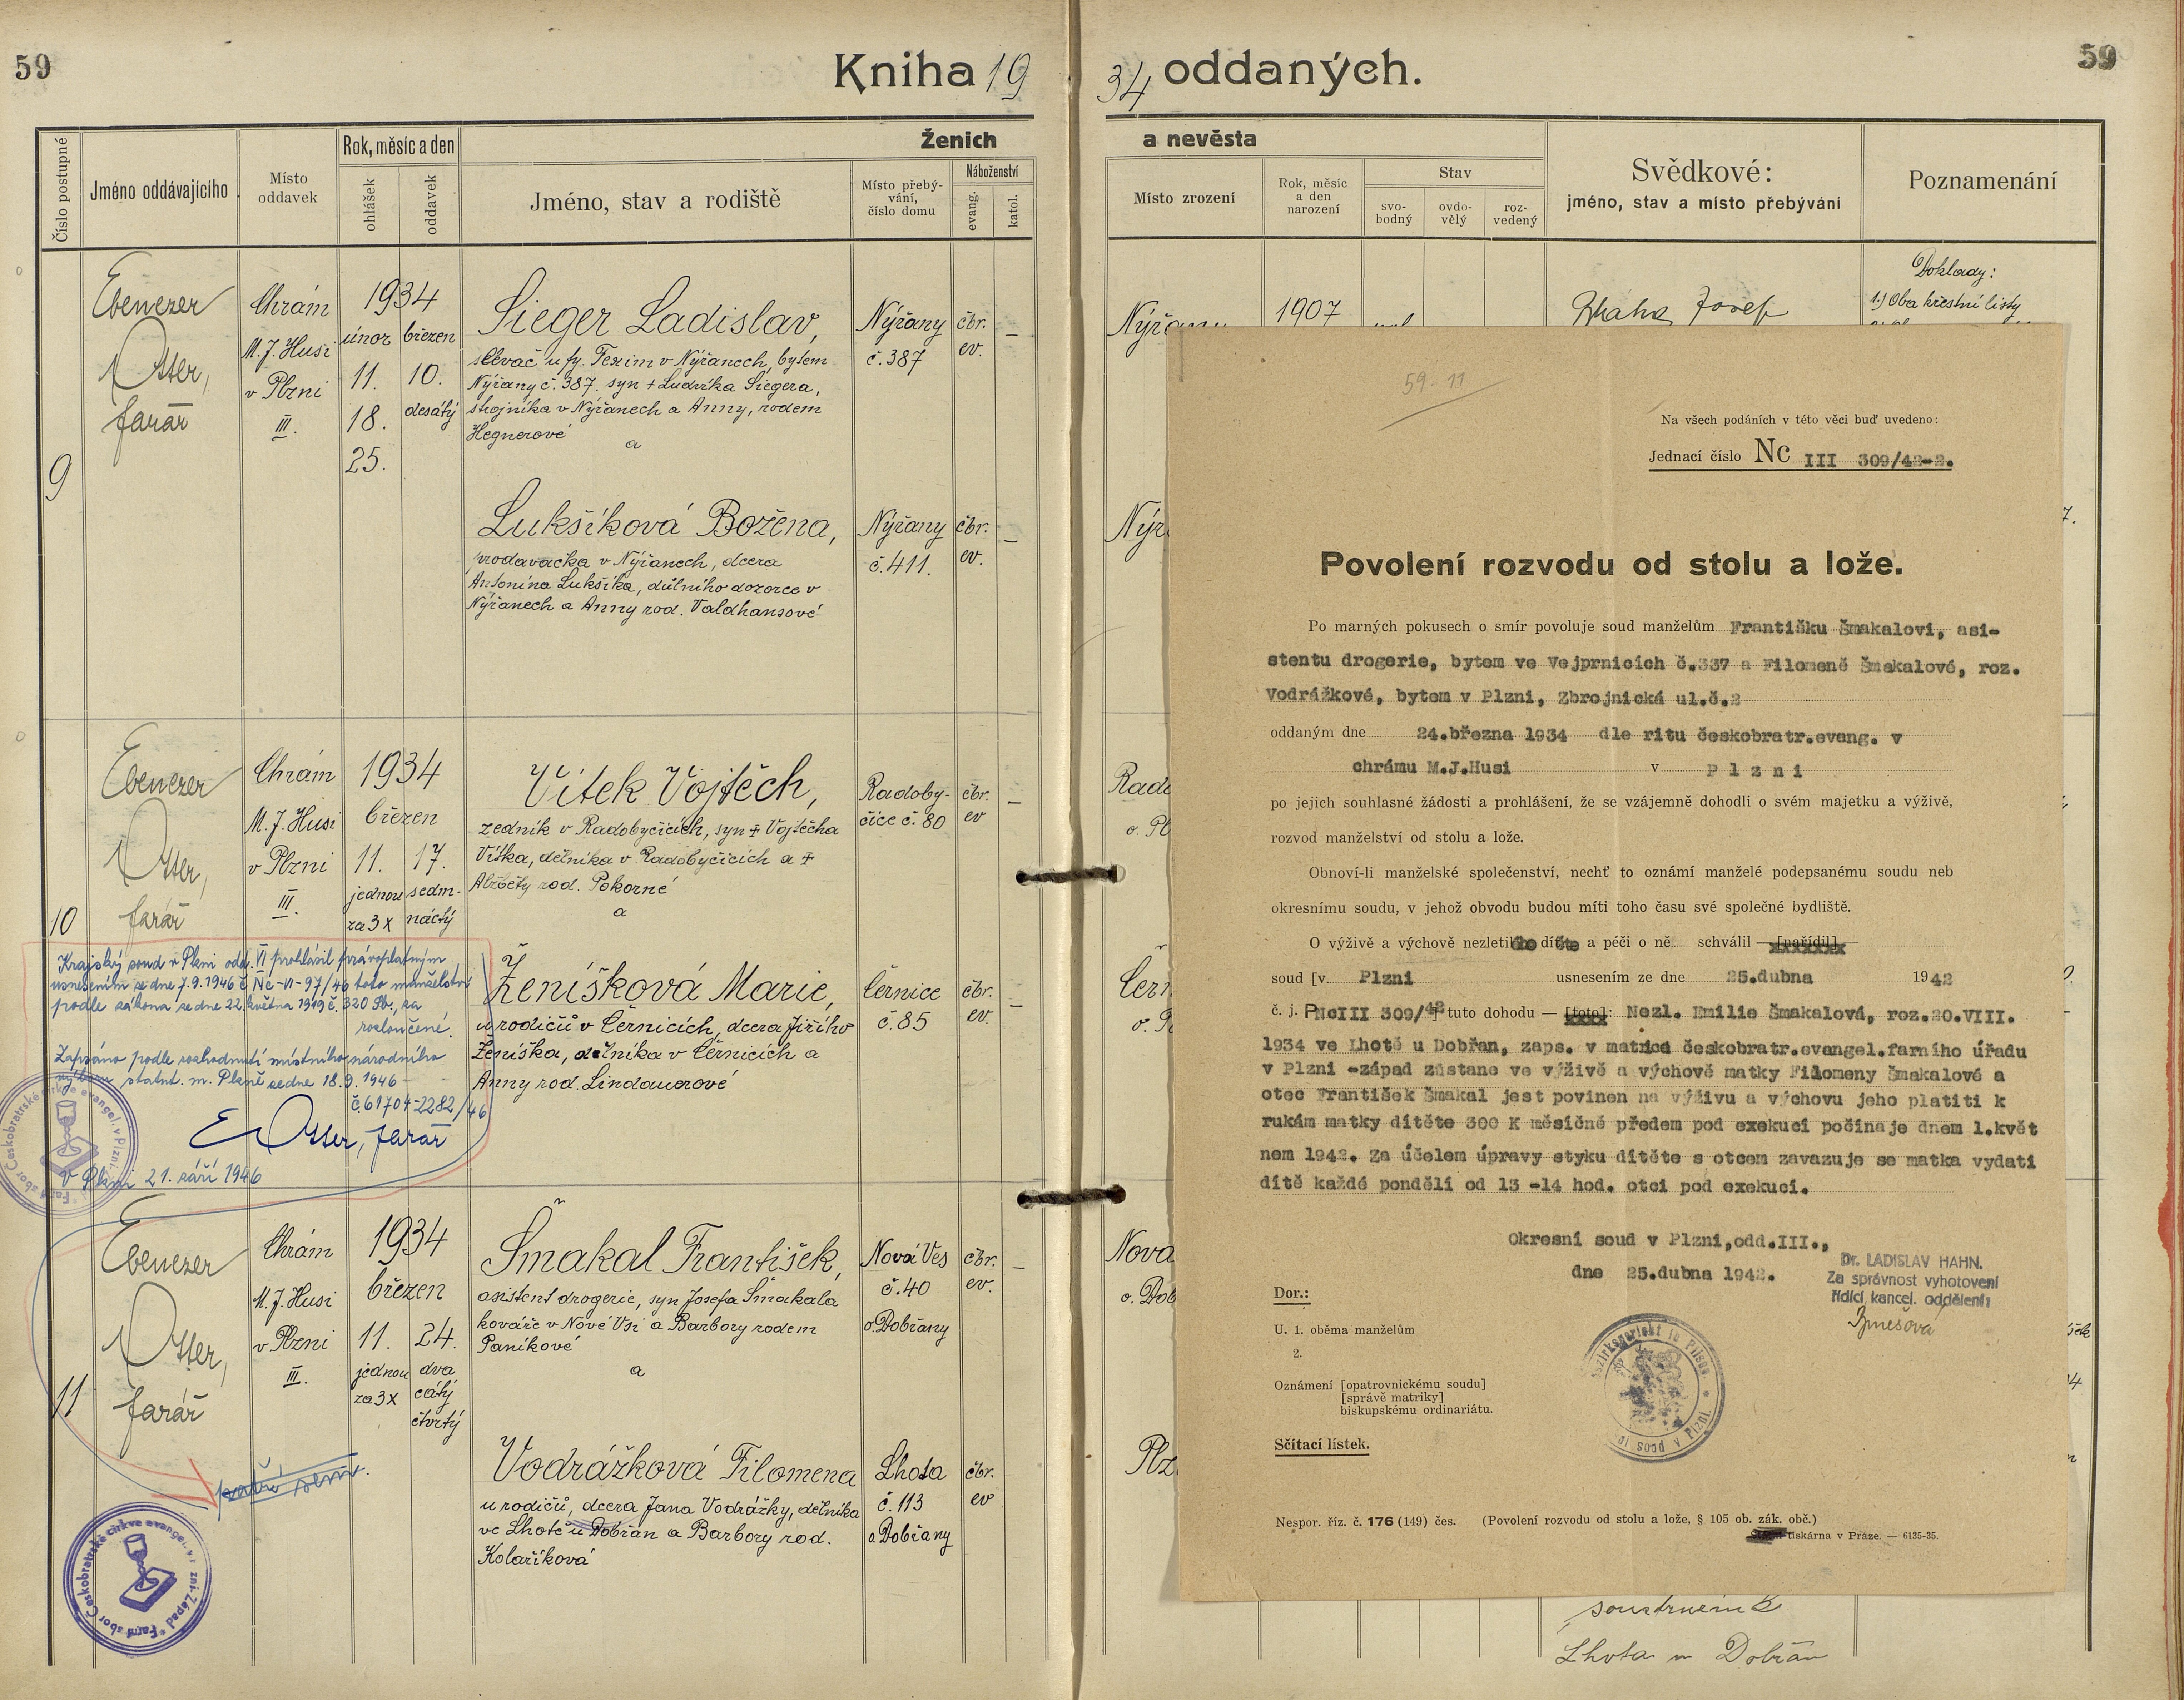 59
Kniha 19
34 oddaných.
59
Číslo postupné
Jméno oddávajícího
Místo
oddavek
Rok, měsíc a den
ohlášek
oddavek
Ženich
Jméno, stav a rodiště
Místo přebý-
vání,
číslo domu
Náboženství
evang.
katol.
a nevěsta
Místo zrození
Rok, měsíc
a den
narození
Stav
svo-
bodný
ovdo-
vělý
roz-
vedený
Svědkové:
jméno, stav a místo přebývání
Poznamenání
9
Ebenezer
Otter,
farář
Chrám
M. J. Husi
v Plzni
III.
1934
únor březen
11. 10.
18. desátý
25.
Sieger Ladislav,
slévač u fy. Texim v Nýřanech, bytem
Nýřany č. 387. syn + Ludvíka Siegera,
strojníka v Nýřanech a Anny, rodem
Hegnerové
a
Nýřany
č. 387
čbr.
ev.
–
Lukšíková Božena,
prodavačka v Nýřanech, dcera
Antonína Lukšíka, důlního dozorce v
Nýřanech a Anny rod. Valdhansové
Nýřany
č. 411.
čbr.
ev.
–
Nýřany
1907
Blaha Josef
Doklady:
1.) Oba křestní listy
10
Ebenezer
Otter,
farář
Chrám
M. J. Husi
v Plzni
III.
1934
březen
11. 17.
jednou sedm-
za 3x náctý
Vítek Vojtěch,
zedník v Radobyčicích, syn + Vojtěcha
Vítka, dělníka v Radobyčicích a +
Alžběty rod. Pokorné
a
Radoby-
čice č. 80
čbr.
ev
–
Ženíšková Marie,
u rodičů v Černicích, dcera Jiřího
Ženíška, dělníka v Černicích a
Anny rod. Lindauerové
Černice
č. 85
čbr.
ev.
–
Krajský soud v Plzni odd. VI prohlásil právoplatným
usnesením ze dne 7.9.1946 č. Nc-VI-97/46 toto manželství
podle zákona ze dne 22. května 1919 č. 320 Sb., za
rozloučené.
Zapsáno podle rozhodnutí místního národního
výboru statut. m. Plzně ze dne 18.9.1946
č. 61704-2282/46
E Otter, farář
V Plzni 21. září 1946
11
Ebenezer
Otter,
farář
Chrám
M. J. Husi
v Plzni
III.
1934
březen
11. 24.
jednou dva
za 3x cátý
čtvrtý
Šmakal František,
asistent drogerie, syn Josefa Šmakala
kováře v Nové Vsi a Barbory rodem
Paníkové
a
Nová Ves
č. 40
o. Dobřany
čbr.
ev.
–
Vodrážková Filomena
u rodičů, dcera Jana Vodrážky, dělníka
ve Lhotě u Dobřan a Barbory rod.
Kolaříková
Lhota
č. 113
o. Dobřany
čbr.
ev
patří sem.
Farní sbor Českobratrské církve evangel. v Plzni-Západ
59-11
Na všech podáních v této věci buď uvedeno:
Jednací číslo Nc III 309/42-2.
Povolení rozvodu od stolu a lože.
Po marných pokusech o smír povoluje soud manželům Františku Šmakalovi, asi-
stentu drogerie, bytem ve Vejprnicích č.337 a Filomeně Šmakalové, roz.
Vodrážkové, bytem v Plzni, Zbrojnická ul.č.2
oddaným dne 24.března 1934 dle ritu českobratr.evang. v
chrámu M.J.Husi v Plzni
po jejich souhlasné žádosti a prohlášení, že se vzájemně dohodli o svém majetku a výživě,
rozvod manželství od stolu a lože.
Obnoví-li manželské společenství, nechť to oznámí manželé podepsanému soudu neb
okresnímu soudu, v jehož obvodu budou míti toho času své společné bydliště.
O výživě a výchově nezletilého dítěte a péči o ně schválil — [nařídil]
soud [v Plzni usnesením ze dne 25.dubna 1942
č. j. P NcIII 309/42] tuto dohodu — [toto]: Nezl. Emilie Šmakalová, roz.20.VIII.
1934 ve Lhotě u Dobřan, zaps. v matrice českobratr.evangel.farního úřadu
v Plzni -západ zůstane ve výživě a výchově matky Filomeny Šmakalové a
otec František Šmakal jest povinen na výživu a výchovu jeho platiti k
rukám matky dítěte 300 K měsíčně předem pod exekucí počínaje dnem 1.květ
nem 1942. Za účelem úpravy styku dítěte s otcem zavazuje se matka vydati
dítě každé pondělí od 13 -14 hod. otci pod exekucí.
Okresní soud v Plzni,odd.III.,
dne 25.dubna 1942.
Dr. LADISLAV HAHN.
Za správnost vyhotovení
řídící kancel. oddělení:
Dor.:
U. 1. oběma manželům
2.
Oznámení [opatrovnickému soudu]
[správě matriky]
biskupskému ordinariátu.
Sčítací lístek.
Bezirksgericht in Pilsen
Nespor. říz. č. 176 (149) čes. (Povolení rozvodu od stolu a lože, § 105 ob. zák. obč.)
tiskárna v Praze. — 6135-35.
soustružník
Lhota u Dobřan